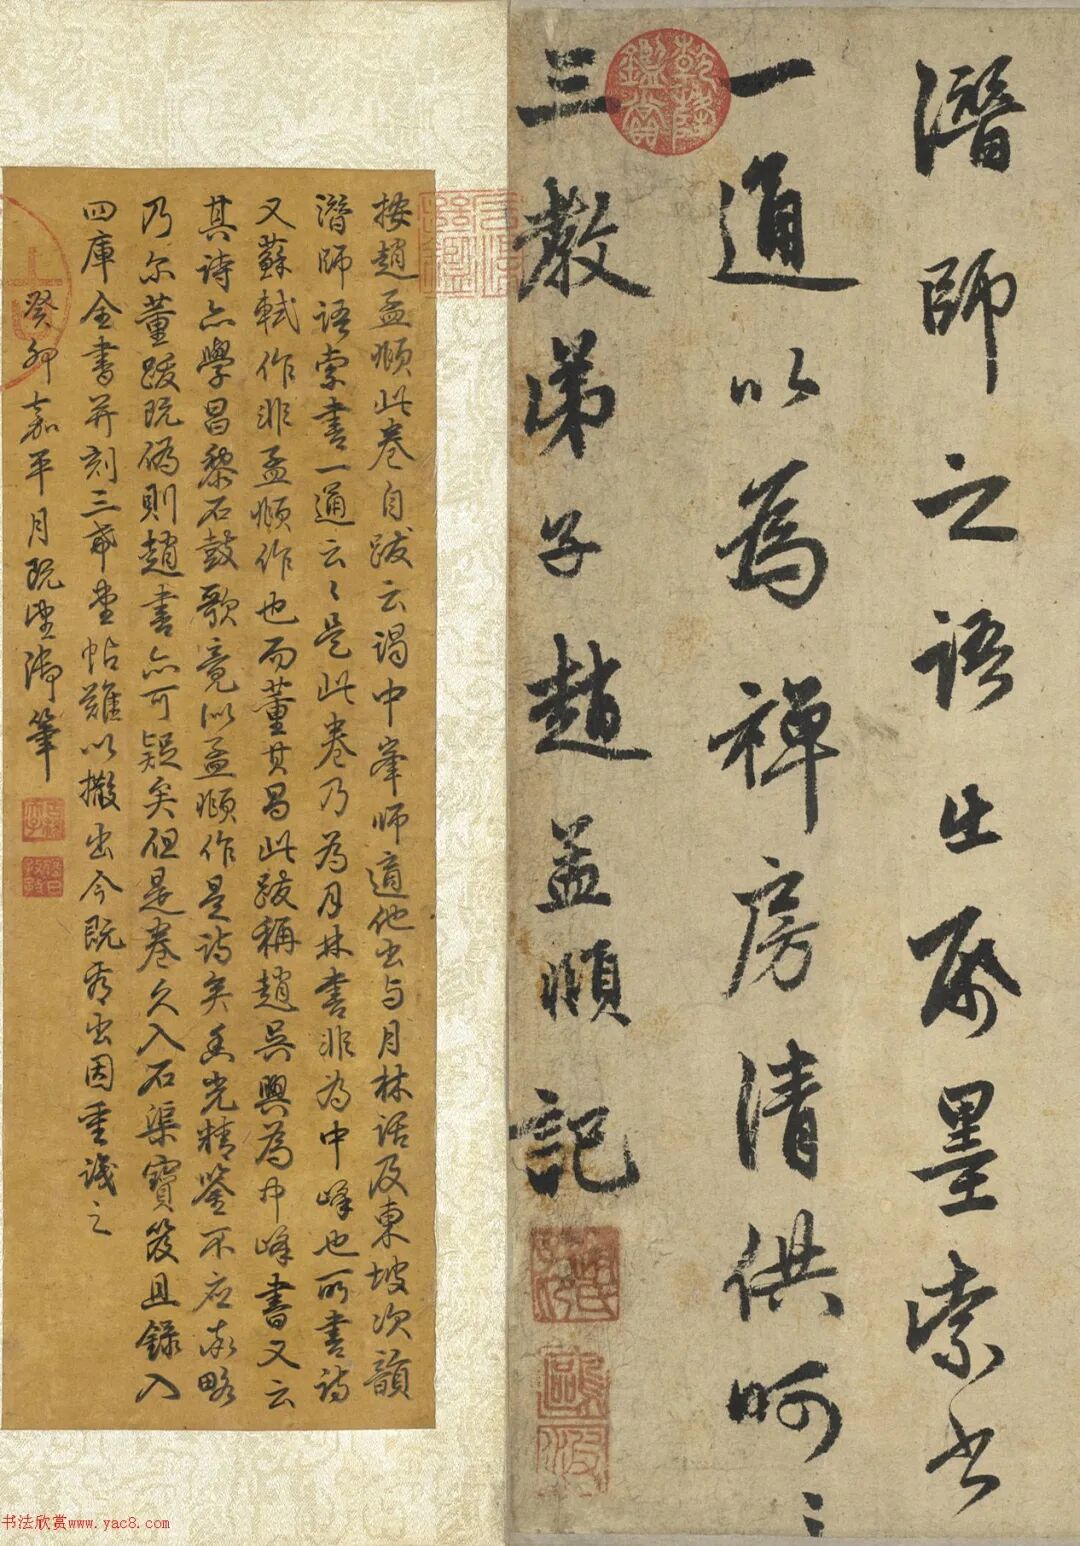 潛師之語出紙墨索書
一通以為禪房清供呵〻
三教弟子趙孟頫記
乾隆鑑賞
趙氏子昂
鷗波
按趙孟頫此卷自跋云謁中峯師適他出與月林話及東坡次韻
潛師語索書一通云〻是此卷乃為月林書非為中峰也所書詩
又蘇軾作非孟頫作也而董其昌此跋稱趙吳興為中峰書又云
其詩亦學昌黎石鼓歌竟似孟頫作是詩矣香光精鑒不應率略
乃尔董跋既偽則趙書亦可疑矣但是卷久入石渠寶笈且錄入
四庫全書并刻三希堂帖難以撤出今既看出因重識之
癸卯嘉平月既望御筆
书法欣赏www.yac8.com